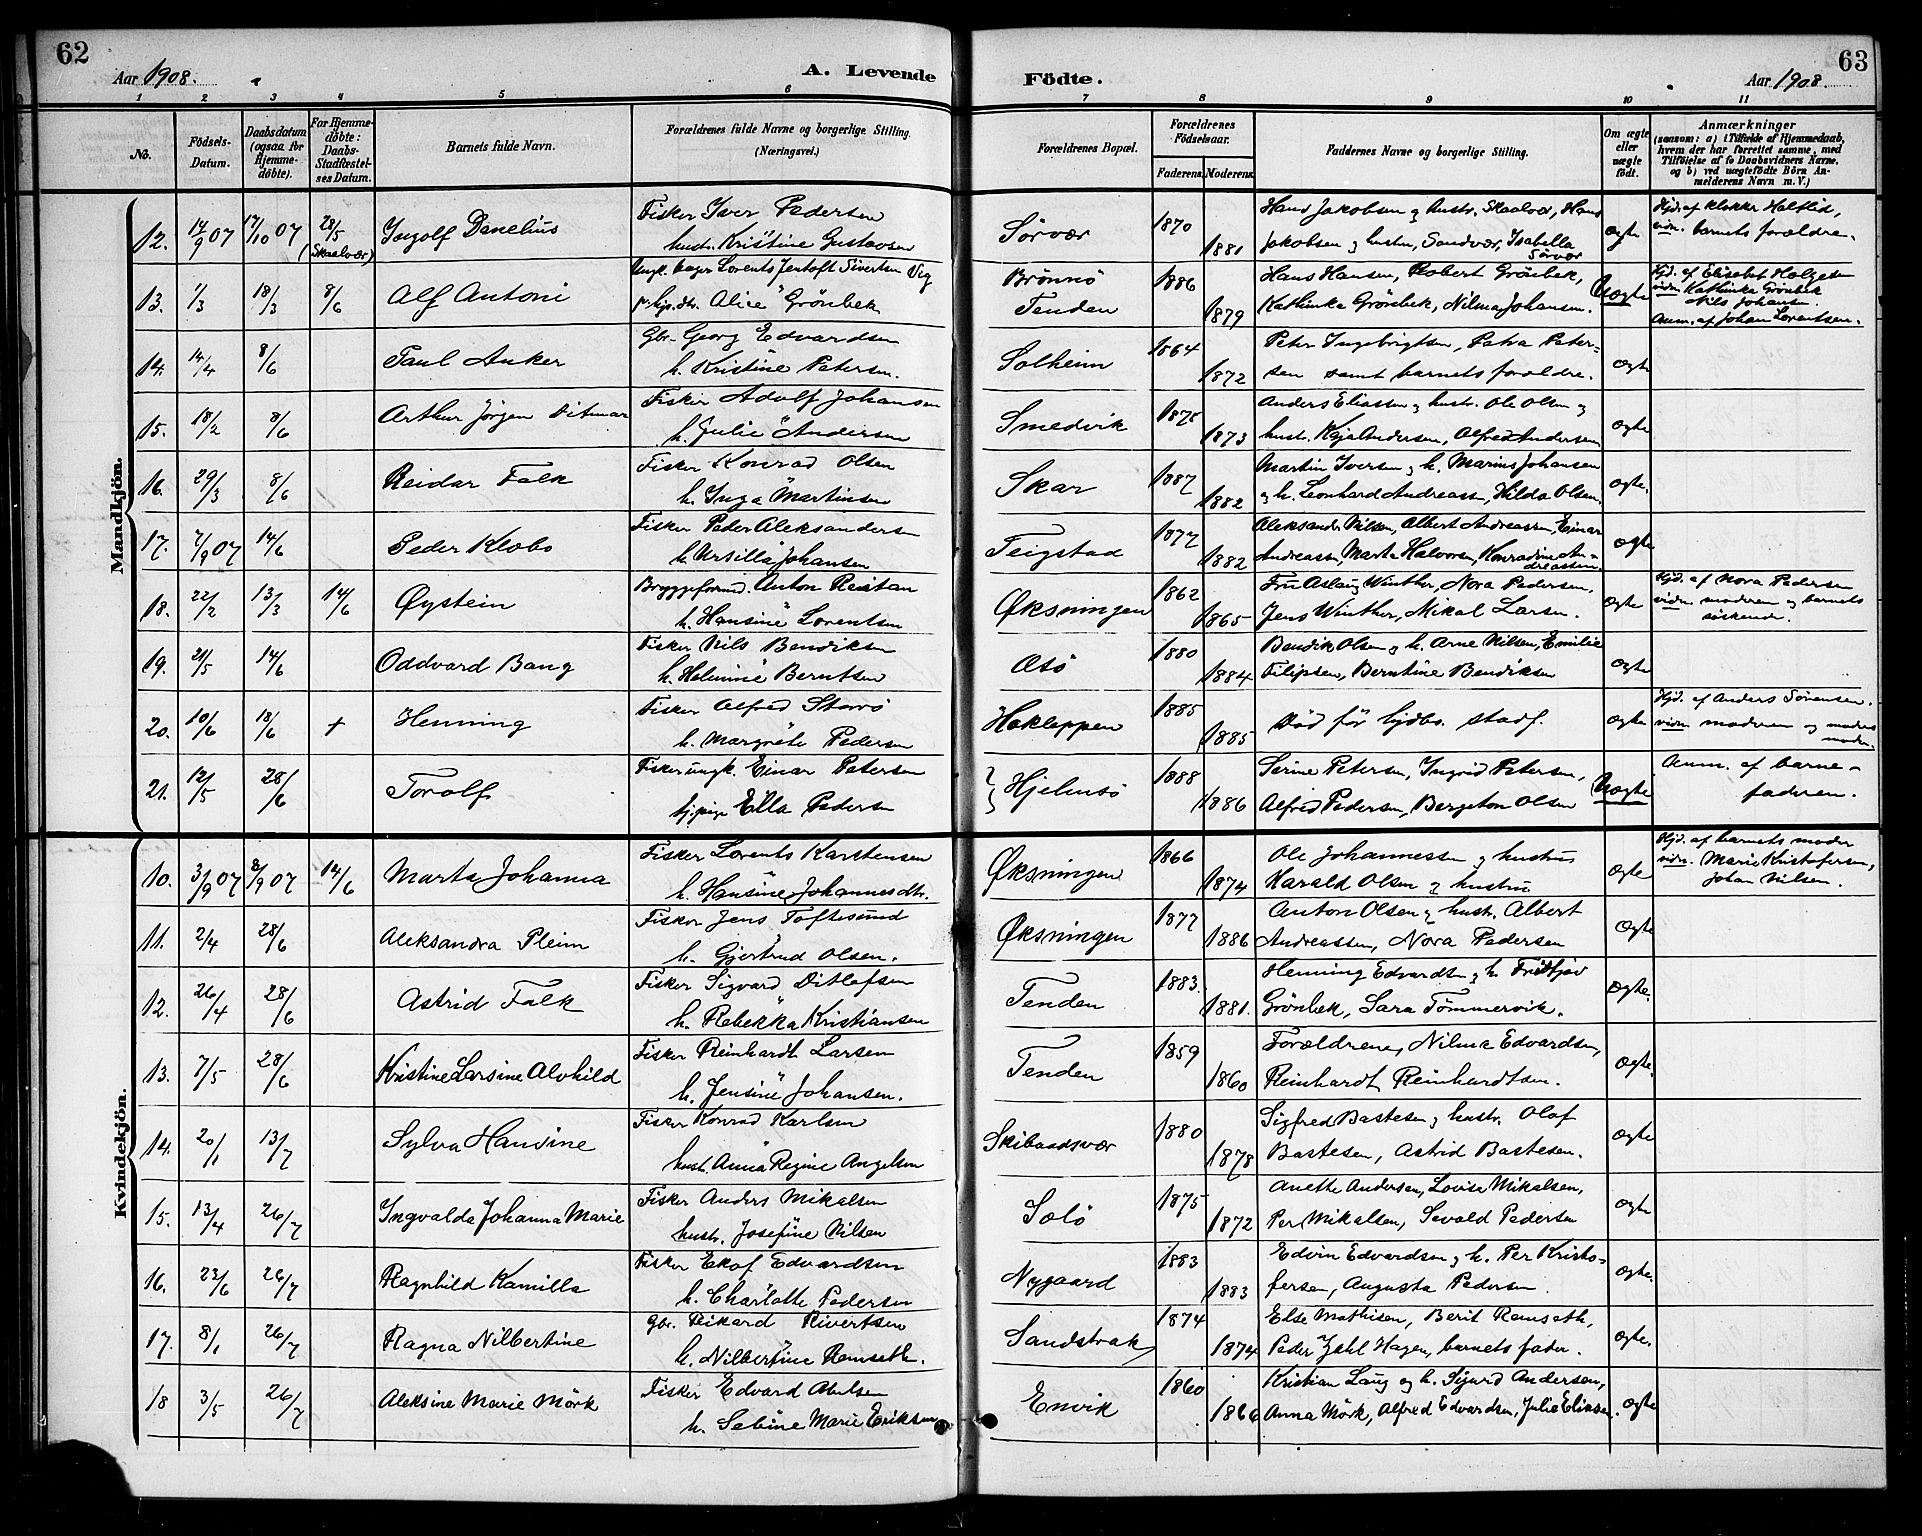 62
Aar 1908.
A. Levende
Födte.
63
Aar 1908.
1 2 3 4 5 6 7 8 9 10 11
No.
Födsels-
Datum.
Daabsdatum
(ogsaa for
Hjemme-
döbte).
For Hjemme-
döbte:
Daabs-
Stadfæstel-
ses Datum.
Barnets fulde Navn.
Forældrenes fulde Navne og borgerlige Stilling.
(Næringsvei.)
Forældrenes Bopæl.
Forældrenes
Födselsaar.
Faderens. Moderens.
Faddernes Navne og borgerlige Stilling.
Om ægte
eller
uægte
födt.
Anmærkninger
(saasom: a) i Tilfælde af Hjemmedaab,
hvem der har forrettet samme, med
Tilföielse af to Daabsvidners Navne,
og b) ved uægtefödte Börn An-
melderens Navn m. V.)
Mandkjön.
12. 14/9 07 17/10 07 28/5 (Skaalvær) Ingolf Danelius
Fisker Iver Pedersen
hust. Kristine Gustavsen
Sørvær 1870 1881
Hans Jakobsen og hustr. Skaalvær, Hans
Jakobsen og hustru, Sandvær, Isabella
Sørvær
ægte
Hjd. af klokker Haltlid,
vidn. barnets forældre.
13. 1/3 18/3 8/6 Alf Antoni
Ungk. bager Lorents Jentoft Sivertsen Vig
pige Alice Grönbek
Brønnö
Tenden 1886 1879
Hans Hansen, Robert Grönbek,
Kathinka Grönbek, Nilma Johansen.
Uægte
Hjd. af Elisabet Holgersen
vidn. Kathinka Grönbek
Nils Johansen.
Anm. af Johan Lorentsen.
14. 14/4 8/6 Paul Anker
Gbr. Georg Edvardsen
h. Kristine Petersen.
Solheim 1864 1872
Peter Ingebrigtsen, Petra Peter-
sen samt barnets forældre.
ægte
15. 18/2 8/6 Arthur Jörgen Ditmar
Fisker Adolf Johansen
h. Julie Andersen
Smedvik 1875 1873
Anders Eliassen og hustr. Ole Olsen og
hust. Kaja Andersen, Alfred Andersen
ægte
16. 29/3 8/6 Reidar Falk
Fisker Konrad Olsen
h. Inga Martinsen
Skar 1887 1882
Martin Iversen og h. Marius Johansen
og h. Leonhard Andreass., Hilda Olsen.
ægte.
17. 7/9 07 14/6 Peder Klobo
Fisker Peder Aleksanders
h. Ursilla Johansen
Teigstad 1877 1882
Aleksander Nilsen, Albert Andreassen, Einar
Andreassen, Marta Halvorsen, Konradine An-
dreassen.
ægte
18. 22/2 13/3 14/6 Øystein
Bryggeformd. Anton Reistan
h. Hansine Lorentsen
Øksningen 1862 1865
Fru Aslaug Winther, Nora Pedersen,
Jens Winther, Mikal Larsen.
ægte
Hjd. af Nora Pedersen
vidn. moderen og barnets
söskende.
19. 21/5 14/6 Oddvard Bang
Fisker Nils Bendiksen
h. Helmine Berntsen
Asö 1880 1884
Bendik Olsen og h. Arne Nilsen, Emilie
Filipsen, Berntine Bendiksen
ægte
20. 10/6 18/6 + Henning
Fisker Alfred Storö
h. Margrete Pedersen
Hakleppen 1885 1885
död för hjdbs. stadf.
ægte
Hjd. af Anders Sörensen.
vidn. moderen og moders
moder.
21. 12/5 28/6 Torolf
Fisker ungk. Einar Petersen
tj.pige Ella Pedersen
Hjelmsö 1888 1886
Serine Petersen, Ingrid Petersen,
Alfred Pedersen, Bergeton Olsen
Uægte
Anm. af barne-
faderen.
Kvindekjön.
10. 3/9 07 8/9 07 14/6 Marta Johanna
Fisker Lorents Karstensen
h. Hansine Johannesdtr.
Øksningen 1866 1874
Ole Johannessen og hustru
Harald Olsen og hustru
ægte
Hjd. af barnets moder
vidn. Marie Kristofersen,
Johan Nilsen.
11. 2/4 28/6 Aleksandra Pleim
Fisker Jens Toftesund
h. Gjertrud Olsen.
Øksningen 1877 1886
Anton Olsen og hust. Albert
Andreassen, Nora Pedersen
ægte
12. 26/4 28/6 Astrid Falk
Fisker Sigvard Ditlefsen
h. Rebekka Kristiansen
Tenden 1883. 1881.
Henning Edvardsen og h. Fridtjov
Grönbek, Sara Tömmervik.
ægte.
13. 7/5 28/6 Kristine Larsine Alvhild
Fisker Reinhardt Larsen
h. Jensine Johansen.
Tenden 1859 1860
Forældrene, Nilma Edvardsen,
Reinhardt Reinhardtsen.
ægte.
14. 20/1 13/7 Sylva Hansine
Fisker Konrad Karlsen
hust. Anna Regine Angelsen
Skibaadsvær 1880 1878
Sigfred Bastesen og hustr. Olaf
Bastesen, Astrid Bastesen.
ægte
15. 13/4 26/7 Ingvalda Johanna Marie
Fisker Anders Mikalsen
hustr. Josefine Nilsen
Solö 1875 1872
Anette Andersen, Lovise Mikalsen,
Per Mikalsen, Sevald Pedersen
ægte
16. 23/6 26/7 Ragnhild Kamilla
Fisker Ekof Edvardsen
h. Charlotte Pedersen
Nygaard 1883 1883
Edvin Edvardsen og h. Per Kristo-
fersen, Augusta Pedersen.
ægte.
17. 8/1 26/7 Ragna Nilbertine
Gbr. Rikard Rivertsen
h. Nilbertine Remseth.
Sandstrak 1874 1874
Else Mathisen, Berit Remseth,
Peder Zahl Hagen, barnets fader.
ægte
18 3/5 26/7 Aleksine Marie Mörk
Fisker Edvard Abelsen
h. Sebine Marie Eriksen
Envik 1860 1866
Kristian Laug og h. Sigurd Andersen,
Anna Mörk, Alfred Edvardsen, Julie Eliassen.
ægte